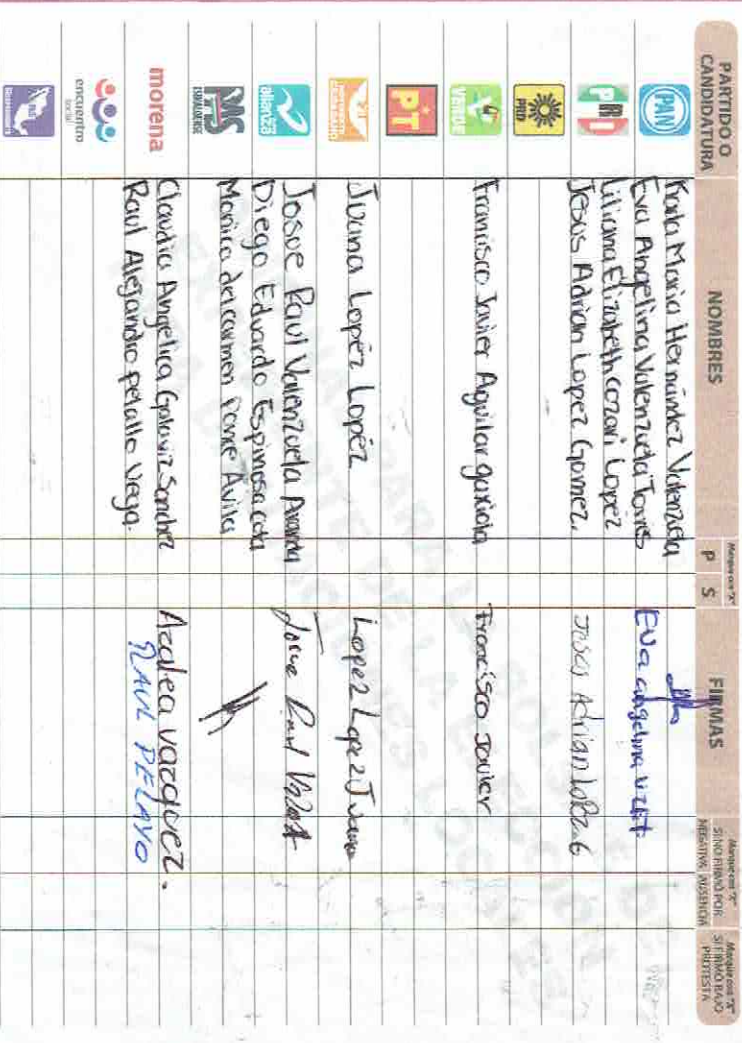 PARTIDO O CANDIDATURA
NOMBRES
Marque con "X"
P S
FIRMAS
Marque con "X" SI NO FIRMÓ POR NEGATIVA AUSENCIA
Marque con "X" SI FIRMÓ BAJO PROTESTA
PAN
Karla Maria Hernández Valenzuela
Eva Angelina Valenzuela Torres
Eva angelina
PRI
Liliana Elizabeth cozari Lopez
Jesus Adrian Lopez Gomez.
Jesus Adrian Lopez G
PRD
VERDE
Francisco Javier Aguilar gaxiola
Francisco Javier
PT
MOVIMIENTO CIUDADANO
Juana Lopéz Lopéz
Lopez Lopez Juana
alianza
Josue Raul Valenzuela Aranda
Josue Raul
Diego Eduardo Espinosa cota
PMS
Monica del carmen Ponce Avila
morena
Claudia Angelica Galaviz Sandez
Azalea vazquez.
Raul Alejandro pelallo Vega.
RAUL PELAYO
encuentro social